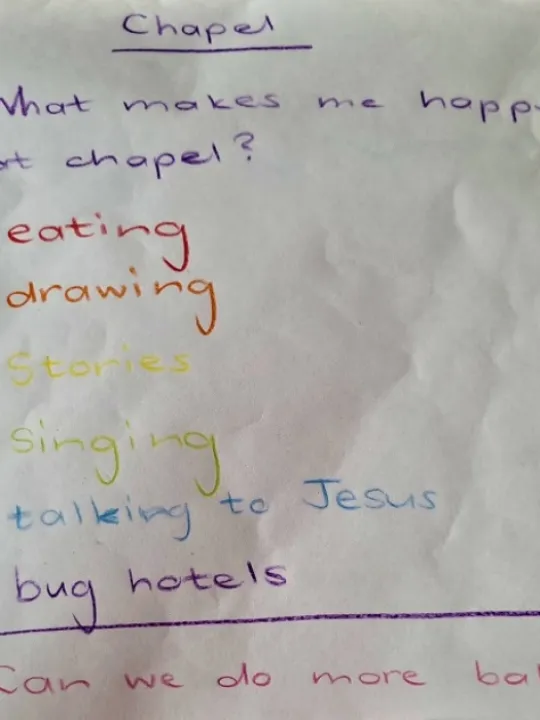 Chapel
What makes me happ
at chapel?
eating
drawing
Stories
singing
talking to Jesus
bug hotels
Can we do more ba